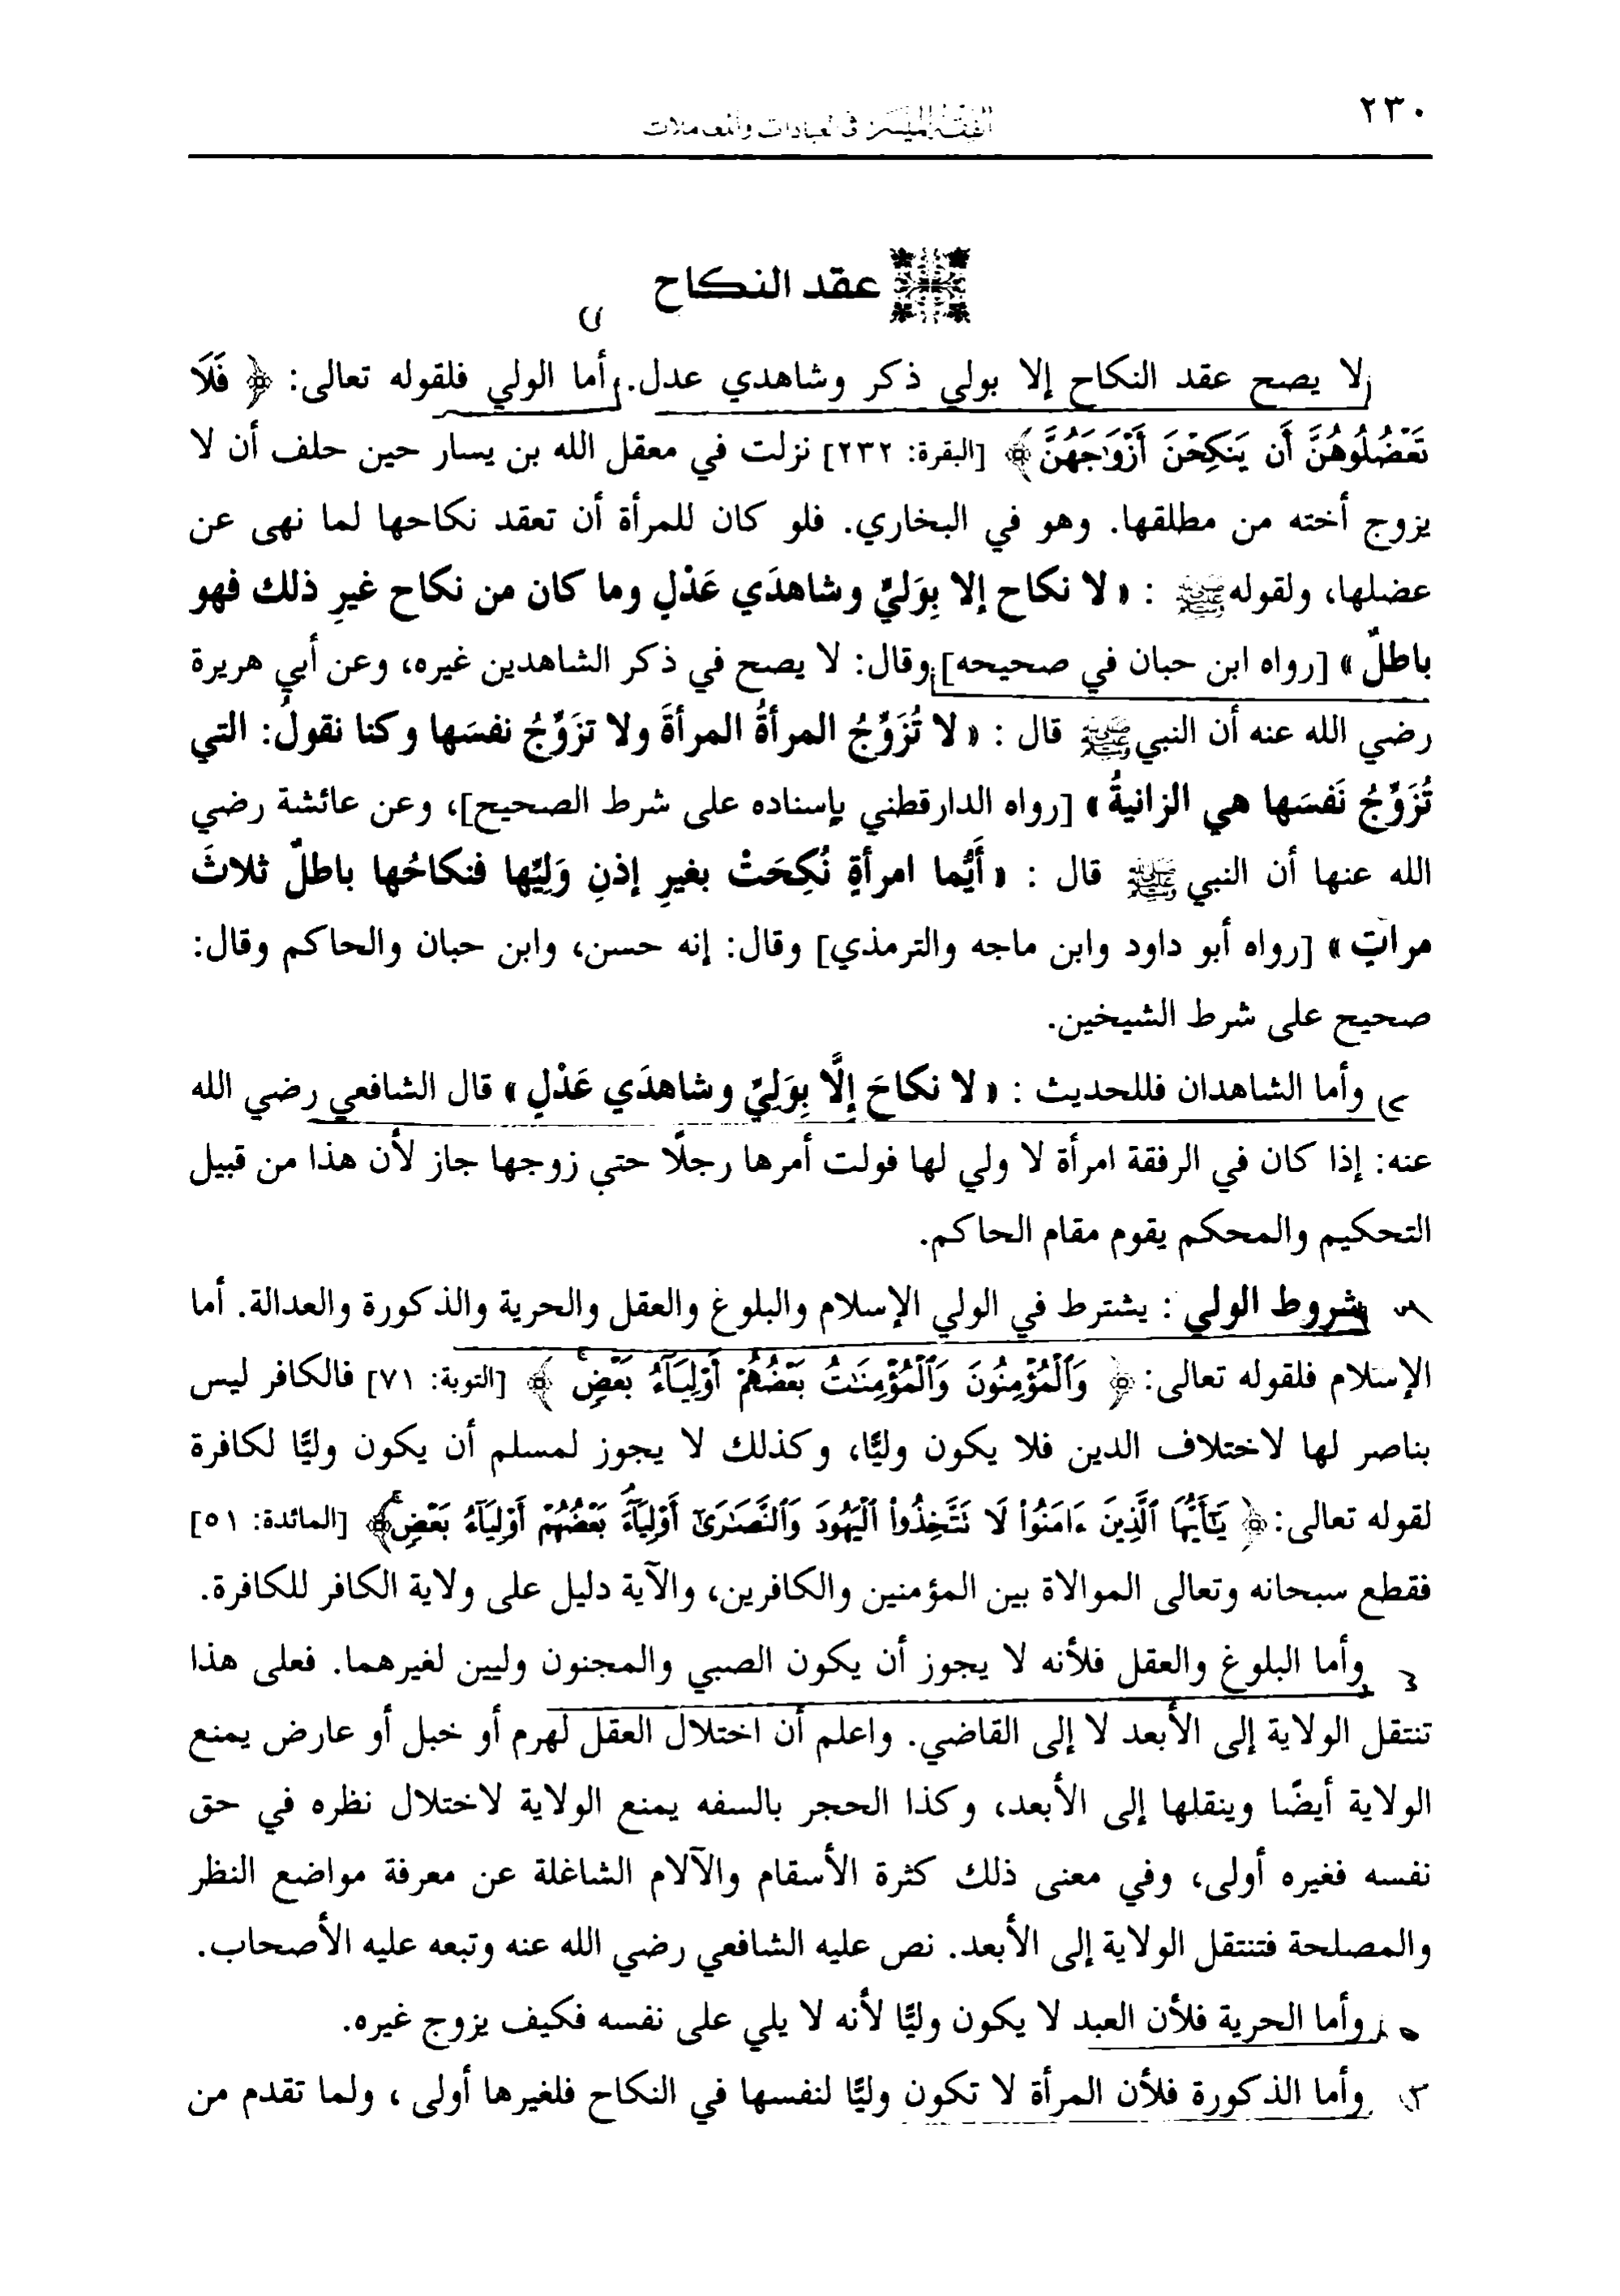 ٢٣٠
الفقه الميسر في العبادات والمعاملات
عقد النكاح
لا يصح عقد النكاح إلا بولي ذكر وشاهدي عدل. أما الولي فلقوله تعالى: ﴿ فَلَا
تَعْضُلُوهُنَّ أَن يَنكِحْنَ أَزْوَٰجَهُنَّ ﴾ [البقرة: ٢٣٢] نزلت في معقل الله بن يسار حين حلف أن لا
يزوج أخته من مطلقها. وهو في البخاري. فلو كان للمرأة أن تعقد نكاحها لما نهى عن
عضلها، ولقوله ﷺ : « لا نكاح إلا بِوَليٍّ وشاهدَي عَدْلٍ وما كان من نكاح غيرِ ذلك فهو
باطلٌ » [رواه ابن حبان في صحيحه] وقال: لا يصح في ذكر الشاهدين غيره، وعن أبي هريرة
رضي الله عنه أن النبي ﷺ قال : « لا تُزَوِّجُ المرأةُ المرأةَ ولا تزَوِّجُ نفسَها وكنا نقولُ: التي
تُزَوِّجُ نَفسَها هي الزانيةُ » [رواه الدارقطني بإسناده على شرط الصحيح]، وعن عائشة رضي
الله عنها أن النبي ﷺ قال : « أَيُّما امرأةٍ نُكِحَتْ بغيرِ إذنِ وَلِيِّها فنكاحُها باطلٌ ثلاثَ
مراتٍ » [رواه أبو داود وابن ماجه والترمذي] وقال: إنه حسن، وابن حبان والحاكم وقال:
صحيح على شرط الشيخين.
وأما الشاهدان فللحديث : « لا نكاحَ إلَّا بِوَلِيٍّ وشاهدَي عَدْلٍ » قال الشافعي رضي الله
عنه: إذا كان في الرفقة امرأة لا ولي لها فولت أمرها رجلًا حتى زوجها جاز لأن هذا من قبيل
التحكيم والمحكم يقوم مقام الحاكم.
شروط الولي : يشترط في الولي الإسلام والبلوغ والعقل والحرية والذكورة والعدالة. أما
الإسلام فلقوله تعالى: ﴿ وَٱلْمُؤْمِنُونَ وَٱلْمُؤْمِنَٰتُ بَعْضُهُمْ أَوْلِيَآءُ بَعْضٍ ﴾ [التوبة: ٧١] فالكافر ليس
بناصر لها لاختلاف الدين فلا يكون وليًّا، وكذلك لا يجوز لمسلم أن يكون وليًّا لكافرة
لقوله تعالى: ﴿ يَٰٓأَيُّهَا ٱلَّذِينَ ءَامَنُوا۟ لَا تَتَّخِذُوا۟ ٱلْيَهُودَ وَٱلنَّصَٰرَىٰٓ أَوْلِيَآءَ بَعْضُهُمْ أَوْلِيَآءُ بَعْضٍ ﴾ [المائدة: ٥١]
فقطع سبحانه وتعالى الموالاة بين المؤمنين والكافرين، والآية دليل على ولاية الكافر للكافرة.
وأما البلوغ والعقل فلأنه لا يجوز أن يكون الصبي والمجنون وليين لغيرهما. فعلى هذا
تنتقل الولاية إلى الأبعد لا إلى القاضي. واعلم أن اختلال العقل لهرم أو خبل أو عارض يمنع
الولاية أيضًا وينقلها إلى الأبعد، وكذا الحجر بالسفه يمنع الولاية لاختلال نظره في حق
نفسه فغيره أولى، وفي معنى ذلك كثرة الأسقام والآلام الشاغلة عن معرفة مواضع النظر
والمصلحة فتنتقل الولاية إلى الأبعد. نص عليه الشافعي رضي الله عنه وتبعه عليه الأصحاب.
وأما الحرية فلأن العبد لا يكون وليًّا لأنه لا يلي على نفسه فكيف يزوج غيره.
وأما الذكورة فلأن المرأة لا تكون وليًّا لنفسها في النكاح فلغيرها أولى ، ولما تقدم من